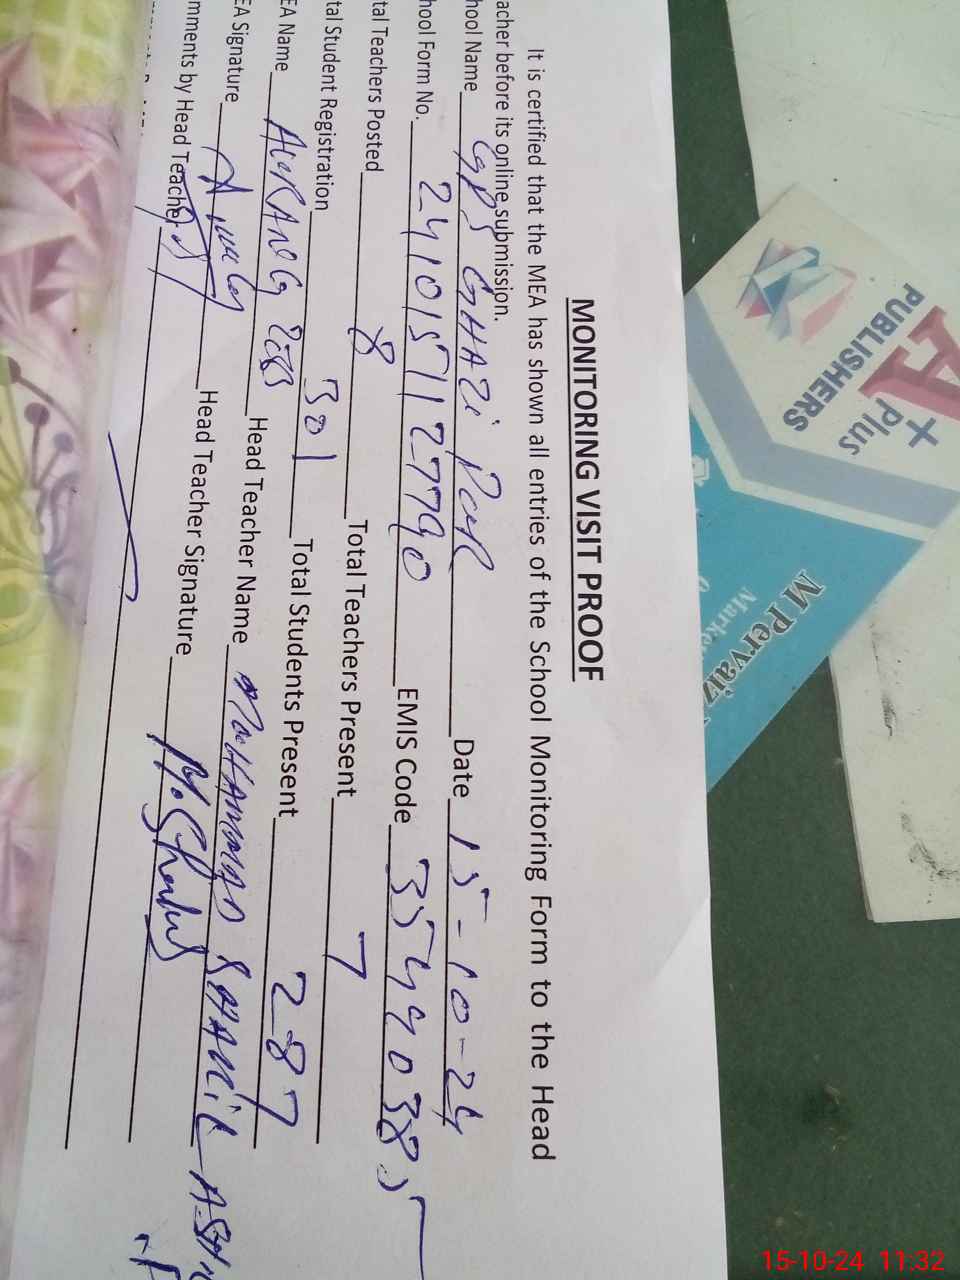 MONITORING VISIT PROOF
It is certified that the MEA has shown all entries of the School Monitoring Form to the Head
acher before its online submission.
hool Name GPS GHAZi Date 15-10-24
hool Form No. 24101571127790 EMIS Code 35440385
tal Teachers Posted 8 Total Teachers Present 7
tal Student Registration 301 Total Students Present 287
EA Name Head Teacher Name MOHAMMAD
EA Signature Head Teacher Signature
mments by Head Teacher
A
+
Plus
PUBLISHERS
M Pervaiz
Marke
15-10-24 11:32